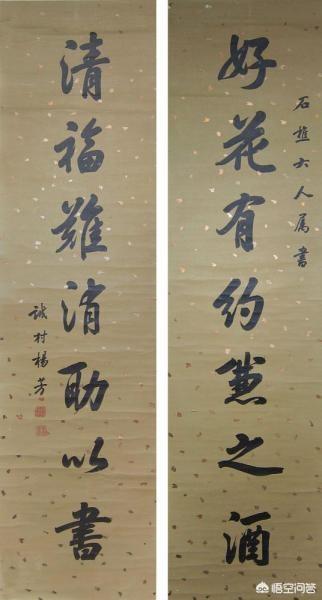 石樵大人属書
好花有約兼之酒
清福難消助以書
誠村楊芳
悟空问答